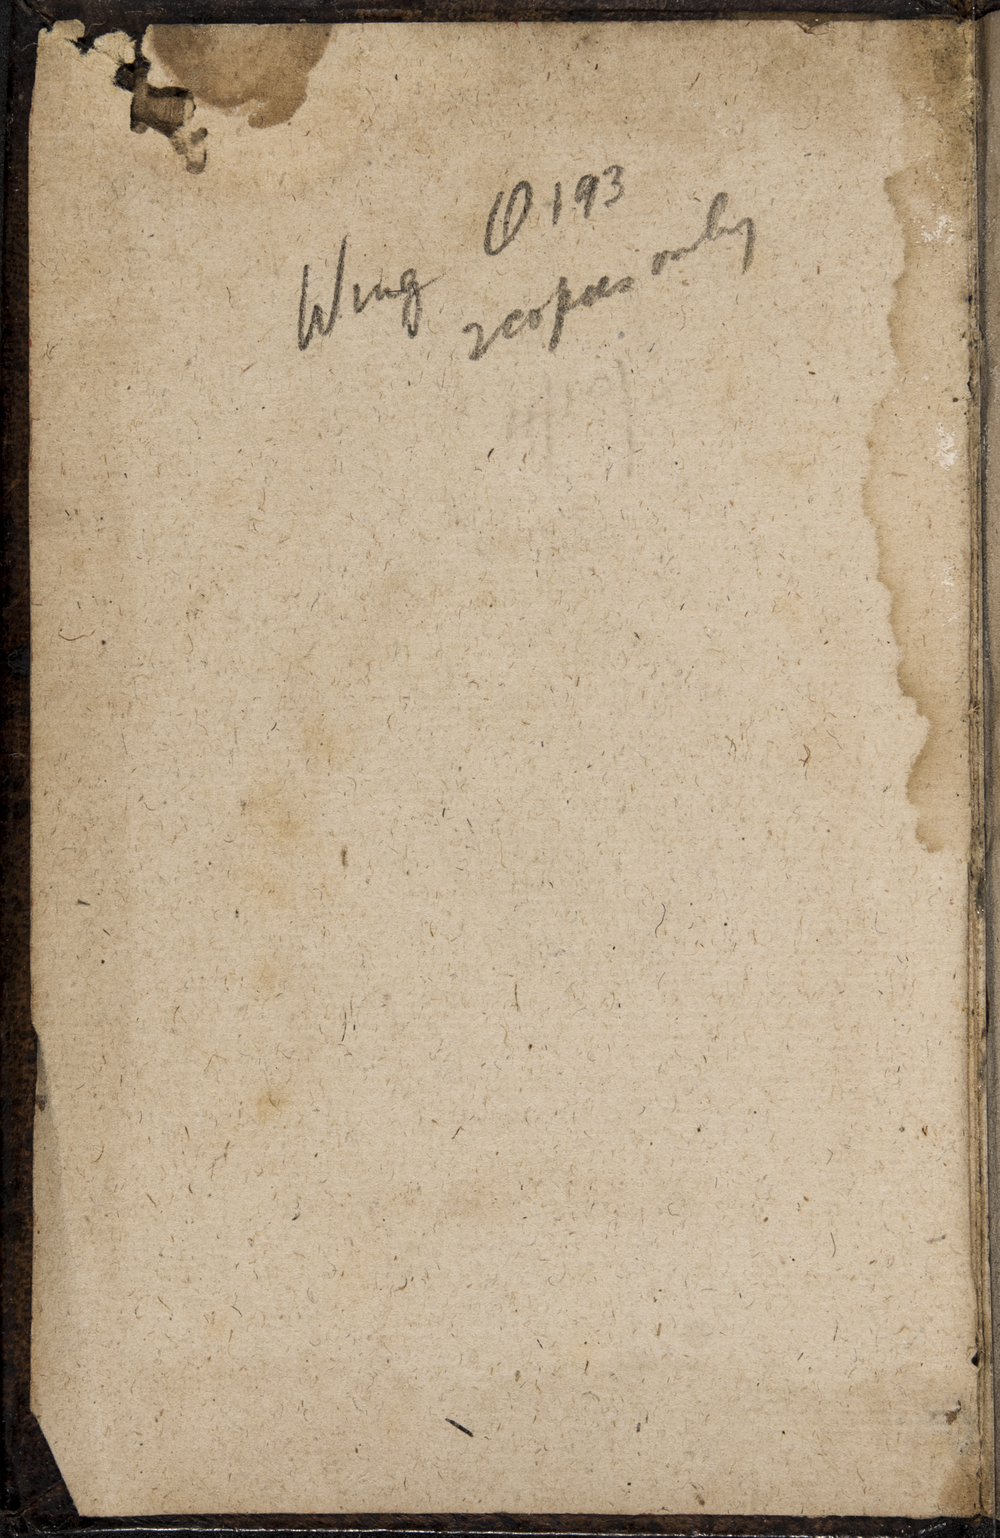 Wing O193
2 copies only